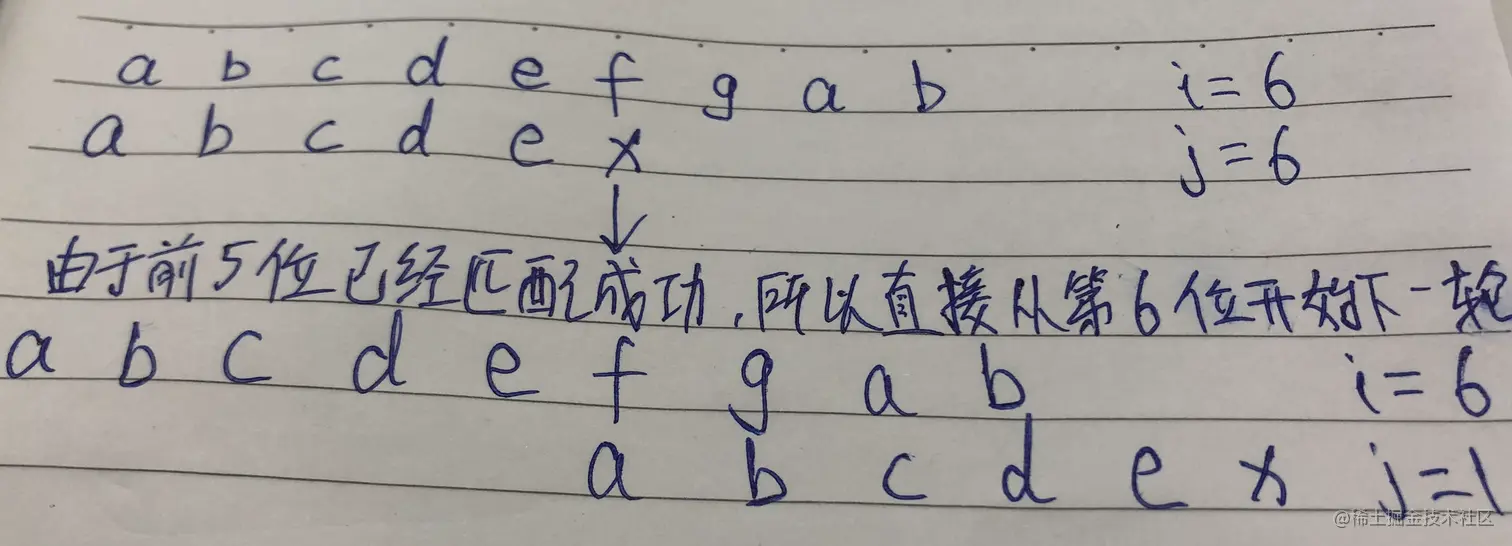 a b c d e f g a b i=6
a b c d e x j=6
↓
由于前5位已经匹配成功,所以直接从第6位开始下一轮
a b c d e f g a b i=6
a b c d e x j=1
@稀土掘金技术社区